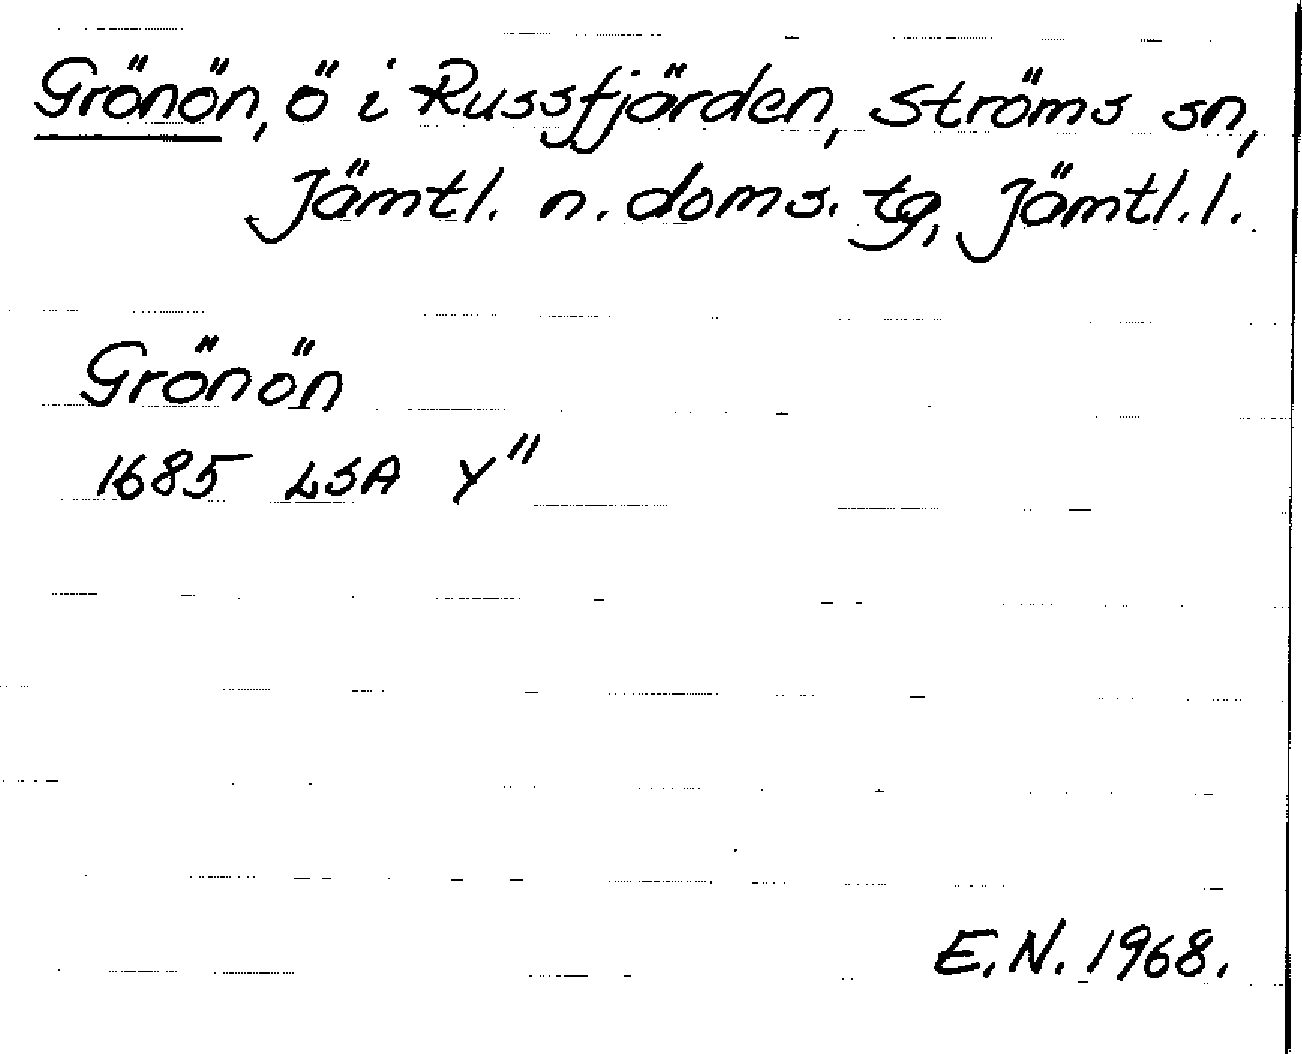 Grönön, ö i Russfjärden, Ströms sn,
Jämtl. n. doms. tg, Jämtl. l.
Grönön
1685 LSA Y"
E.N. 1968.